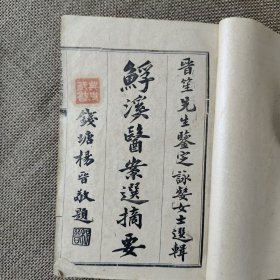 晉笙先生鑒定 詠簃女士選輯
鯚溪醫案選摘要
錢塘楊晉敬題